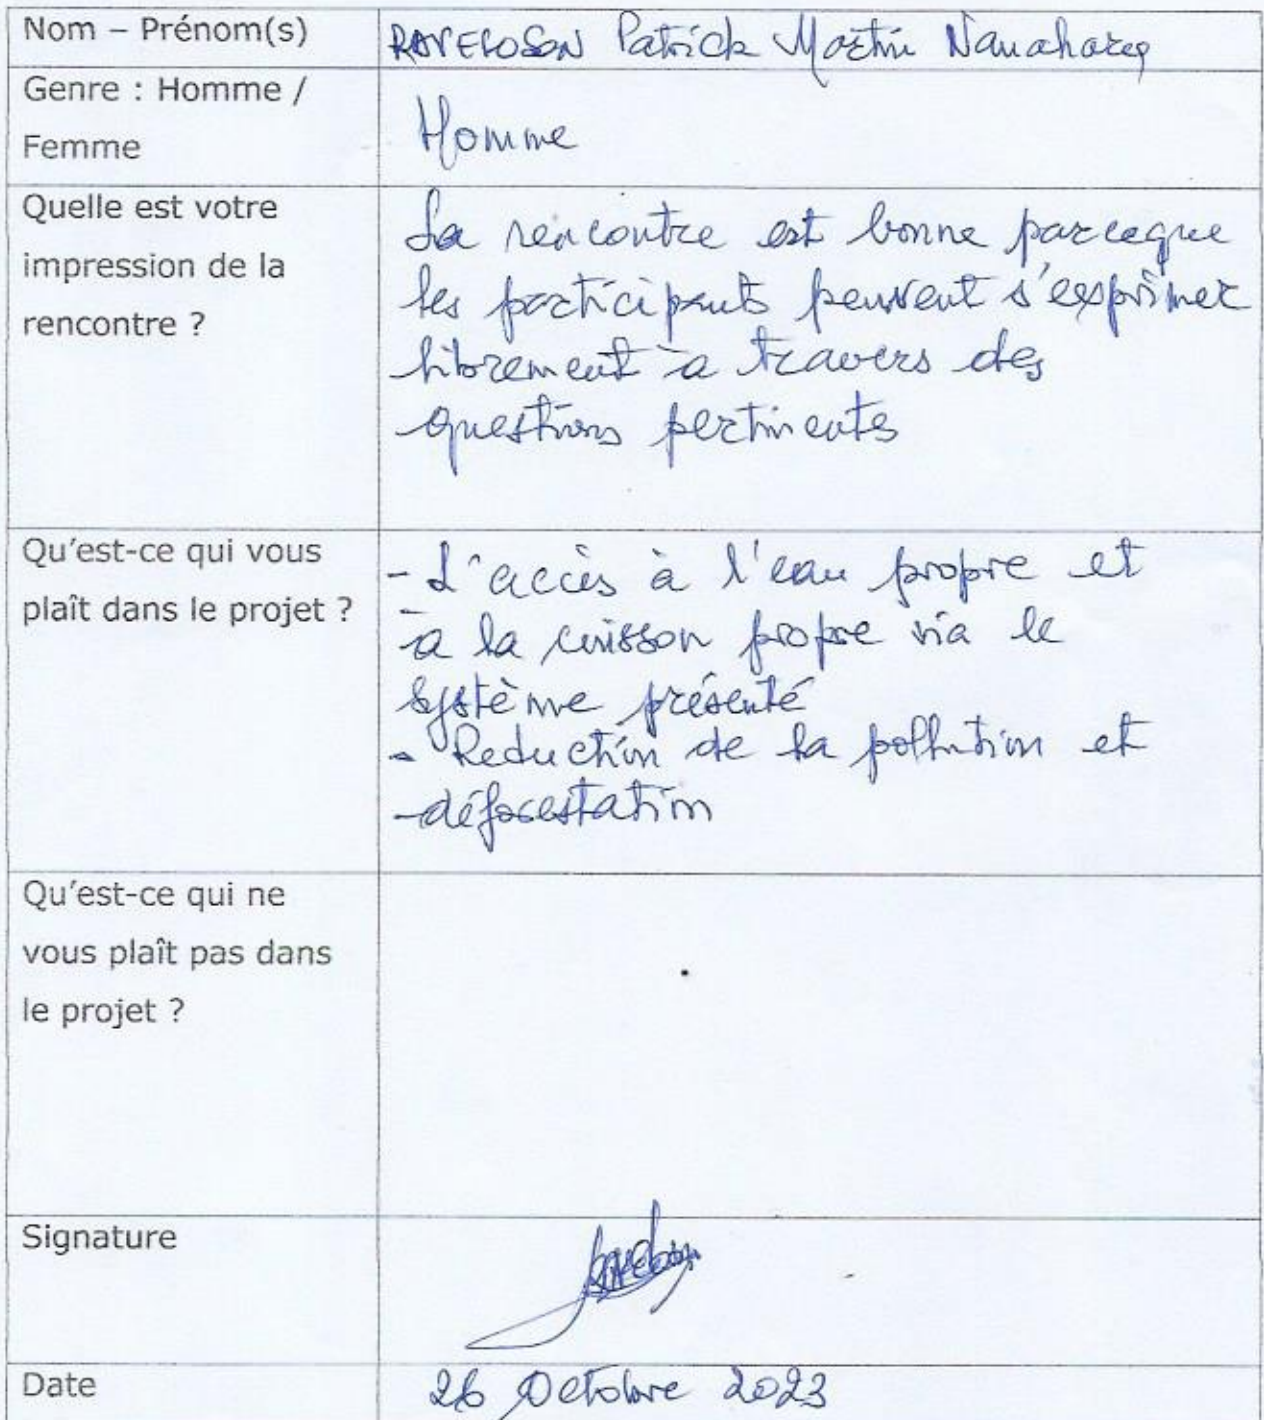 Nom – Prénom(s)
RAVELOSON Patrick Martin
Genre : Homme /
Femme
Homme
Quelle est votre
impression de la
rencontre ?
La rencontre est bonne parceque
les participants peuvent s'exprimer
librement à travers des
questions pertinentes
Qu'est-ce qui vous
plaît dans le projet ?
- L'accès à l'eau propre et
à la cuisson propre via le
système présenté
- Reduction de la pollution et
déforestation
Qu'est-ce qui ne
vous plaît pas dans
le projet ?
Signature
Date
26 Octobre 2023